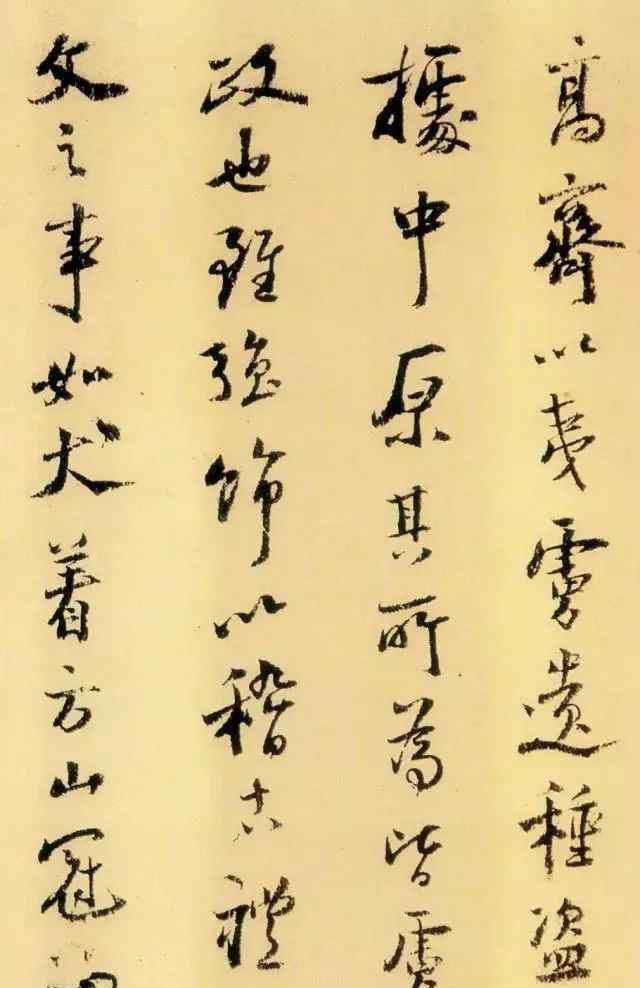 高齋以夷虜遺種盜
據中原其所為皆虜
政也雖強飾以稽古禮
文之事如犬着方山冠